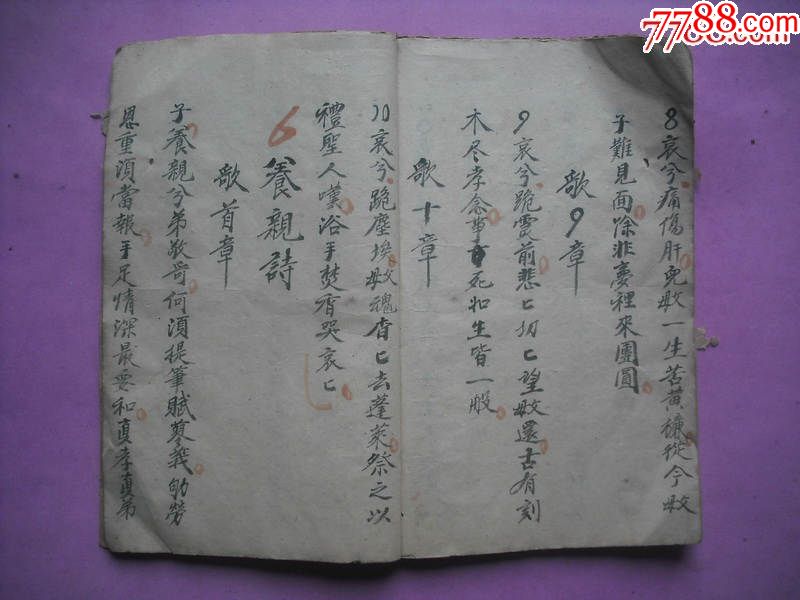 7788.com
8哀兮痛傷肝兒母一生苦黄槤從今母
子難見面除非夢裡來團圓
歌9章
9哀兮跪灵前悲匕切匕望母還古有刻
木尽孝念事死如生皆一般
歌十章
10哀兮跪塵埃母魂杳匕去蓬萊祭之以
禮聖人嘆浴手焚香哭哀匕
6養親詩
歌首章
子養親兮弟敬哥何須提筆賦蓼莪劬勞
恩重須當報手足情深最要和真孝真弟